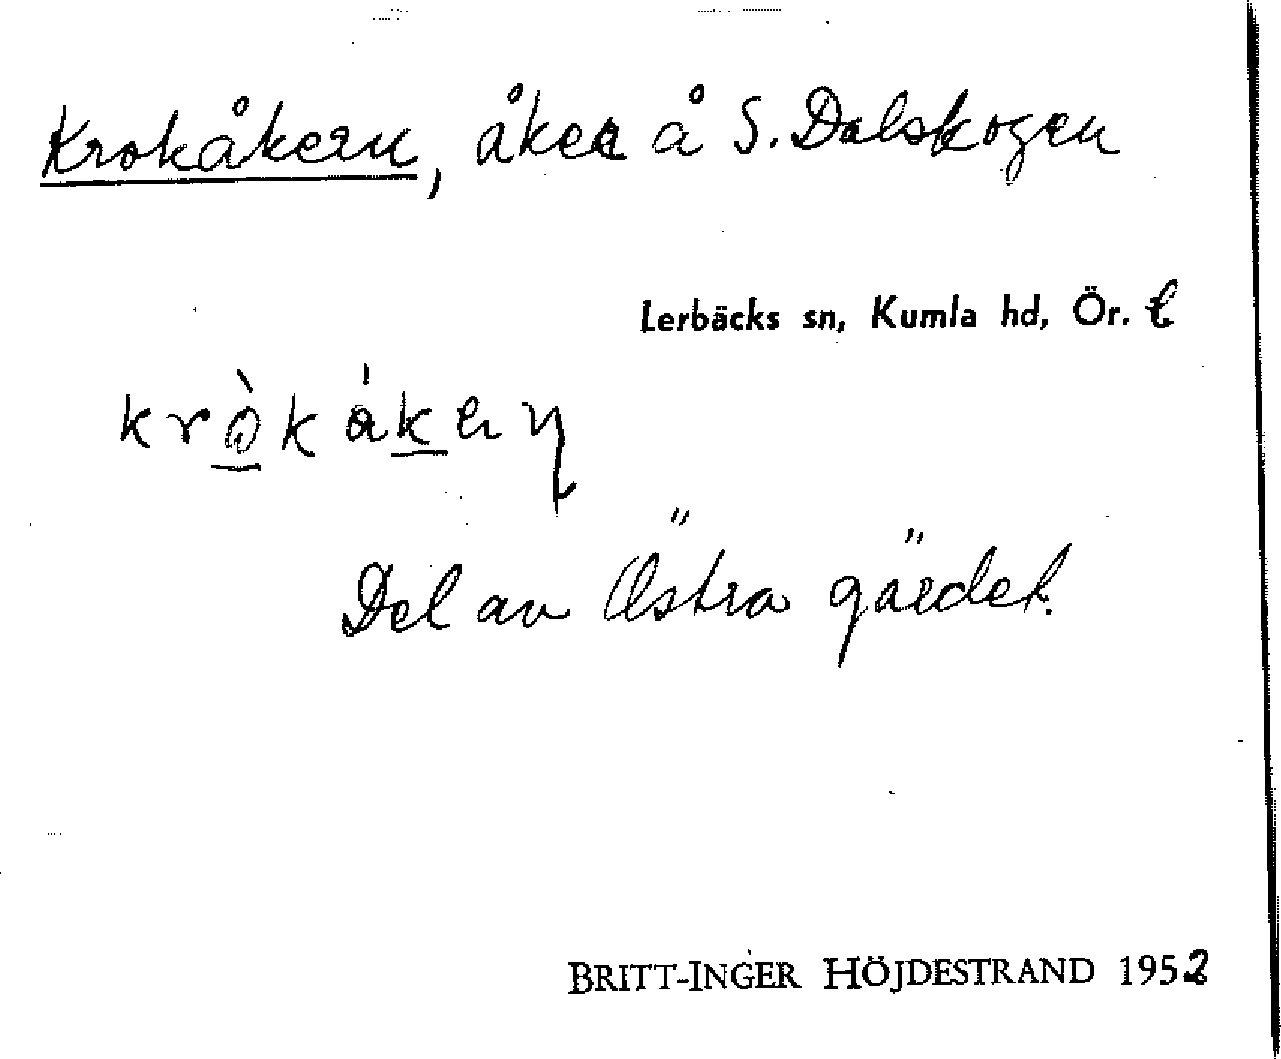 Krokåkern, åker å S. Dalskogen
Lerbäcks sn, Kumla hd, Ör. l
kròkákeṇ
Del av Östra gärdet.
BRITT-INGER HÖJDESTRAND 1952